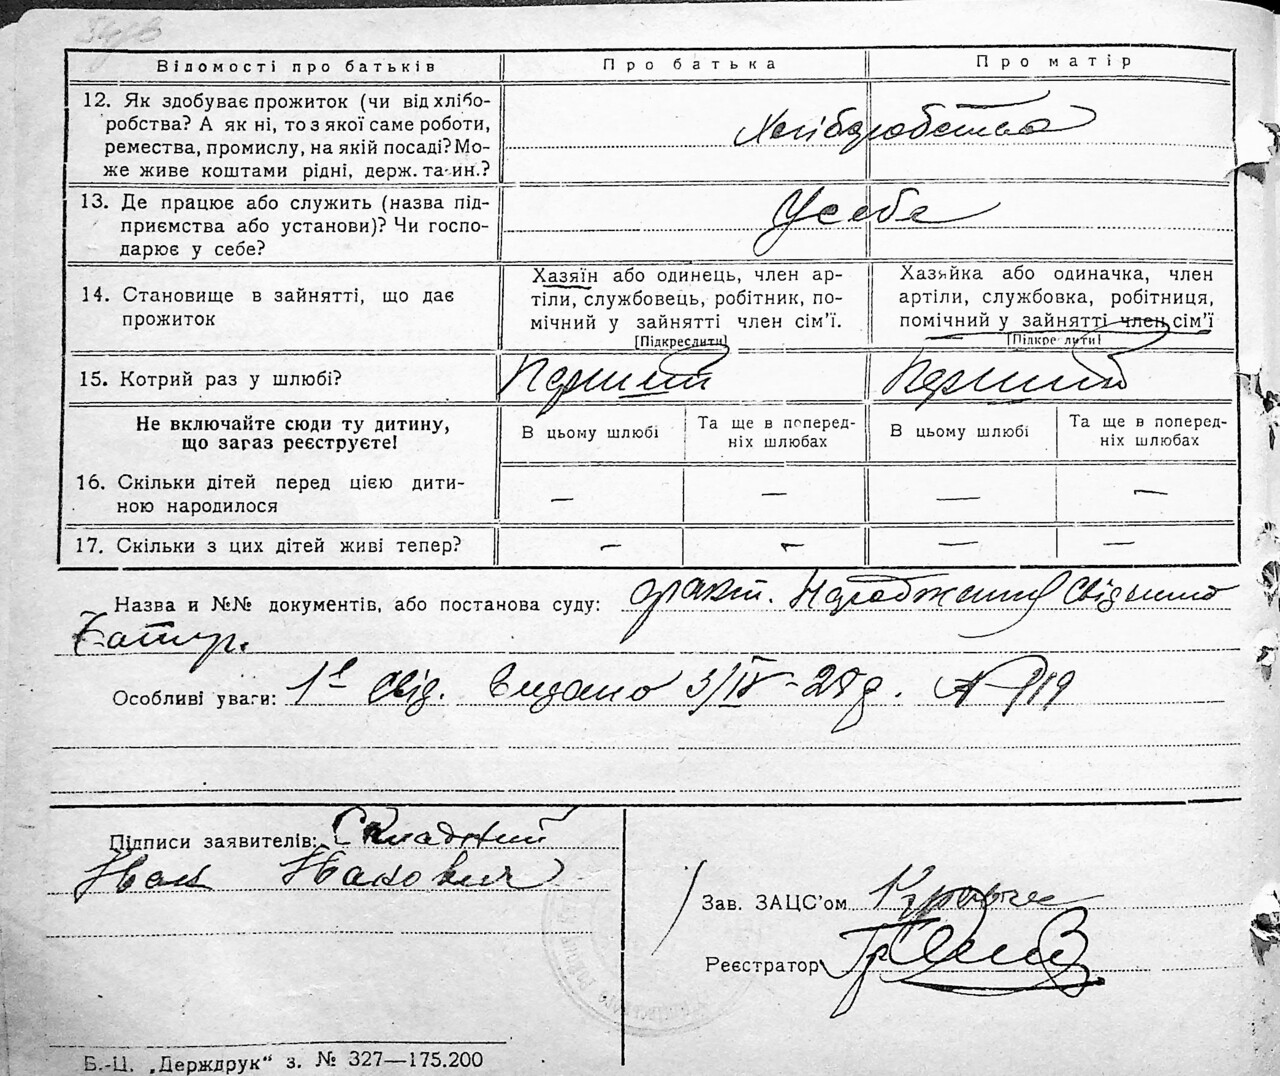 Відомості про батьків
Про батька
Про матір
12. Як здобуває прожиток (чи від хлібо-
робства? А як ні, то з якої саме роботи,
ремества, промислу, на якій посаді? Мо-
же живе коштами рідні, держ. та ин.?
Хліборобство
13. Де працює або служить (назва під-
приємства або установи)? Чи госпо-
дарює у себе?
У себе
14. Становище в зайнятті, що дає
прожиток
Хазяїн або одинець, член ар-
тіли, службовець, робітник, по-
мічний у зайнятті член сім'ї.
[Підкреслити]
Хазяйка або одиначка, член
артіли, службовка, робітниця,
помічний у зайнятті член сім'ї
[Підкреслити]
15. Котрий раз у шлюбі?
Перший
Перший
Не включайте сюди ту дитину,
що зараз реєструєте!
В цьому шлюбі
Та ще в поперед-
ніх шлюбах
В цьому шлюбі
Та ще в поперед-
ніх шлюбах
16. Скільки дітей перед цією дити-
ною народилося
— — — —
17. Скільки з цих дітей живі тепер?
— — — —
Назва и №№ документів, або постанова суду: факт. Народження
Особливі уваги: Свід. видано 3/IV-28 р. №
Підписи заявителів:
Іван Іванович
Зав. ЗАЦС'ом
Реєстратор
Б.-Ц. „Держдрук“ з. № 327—175.200